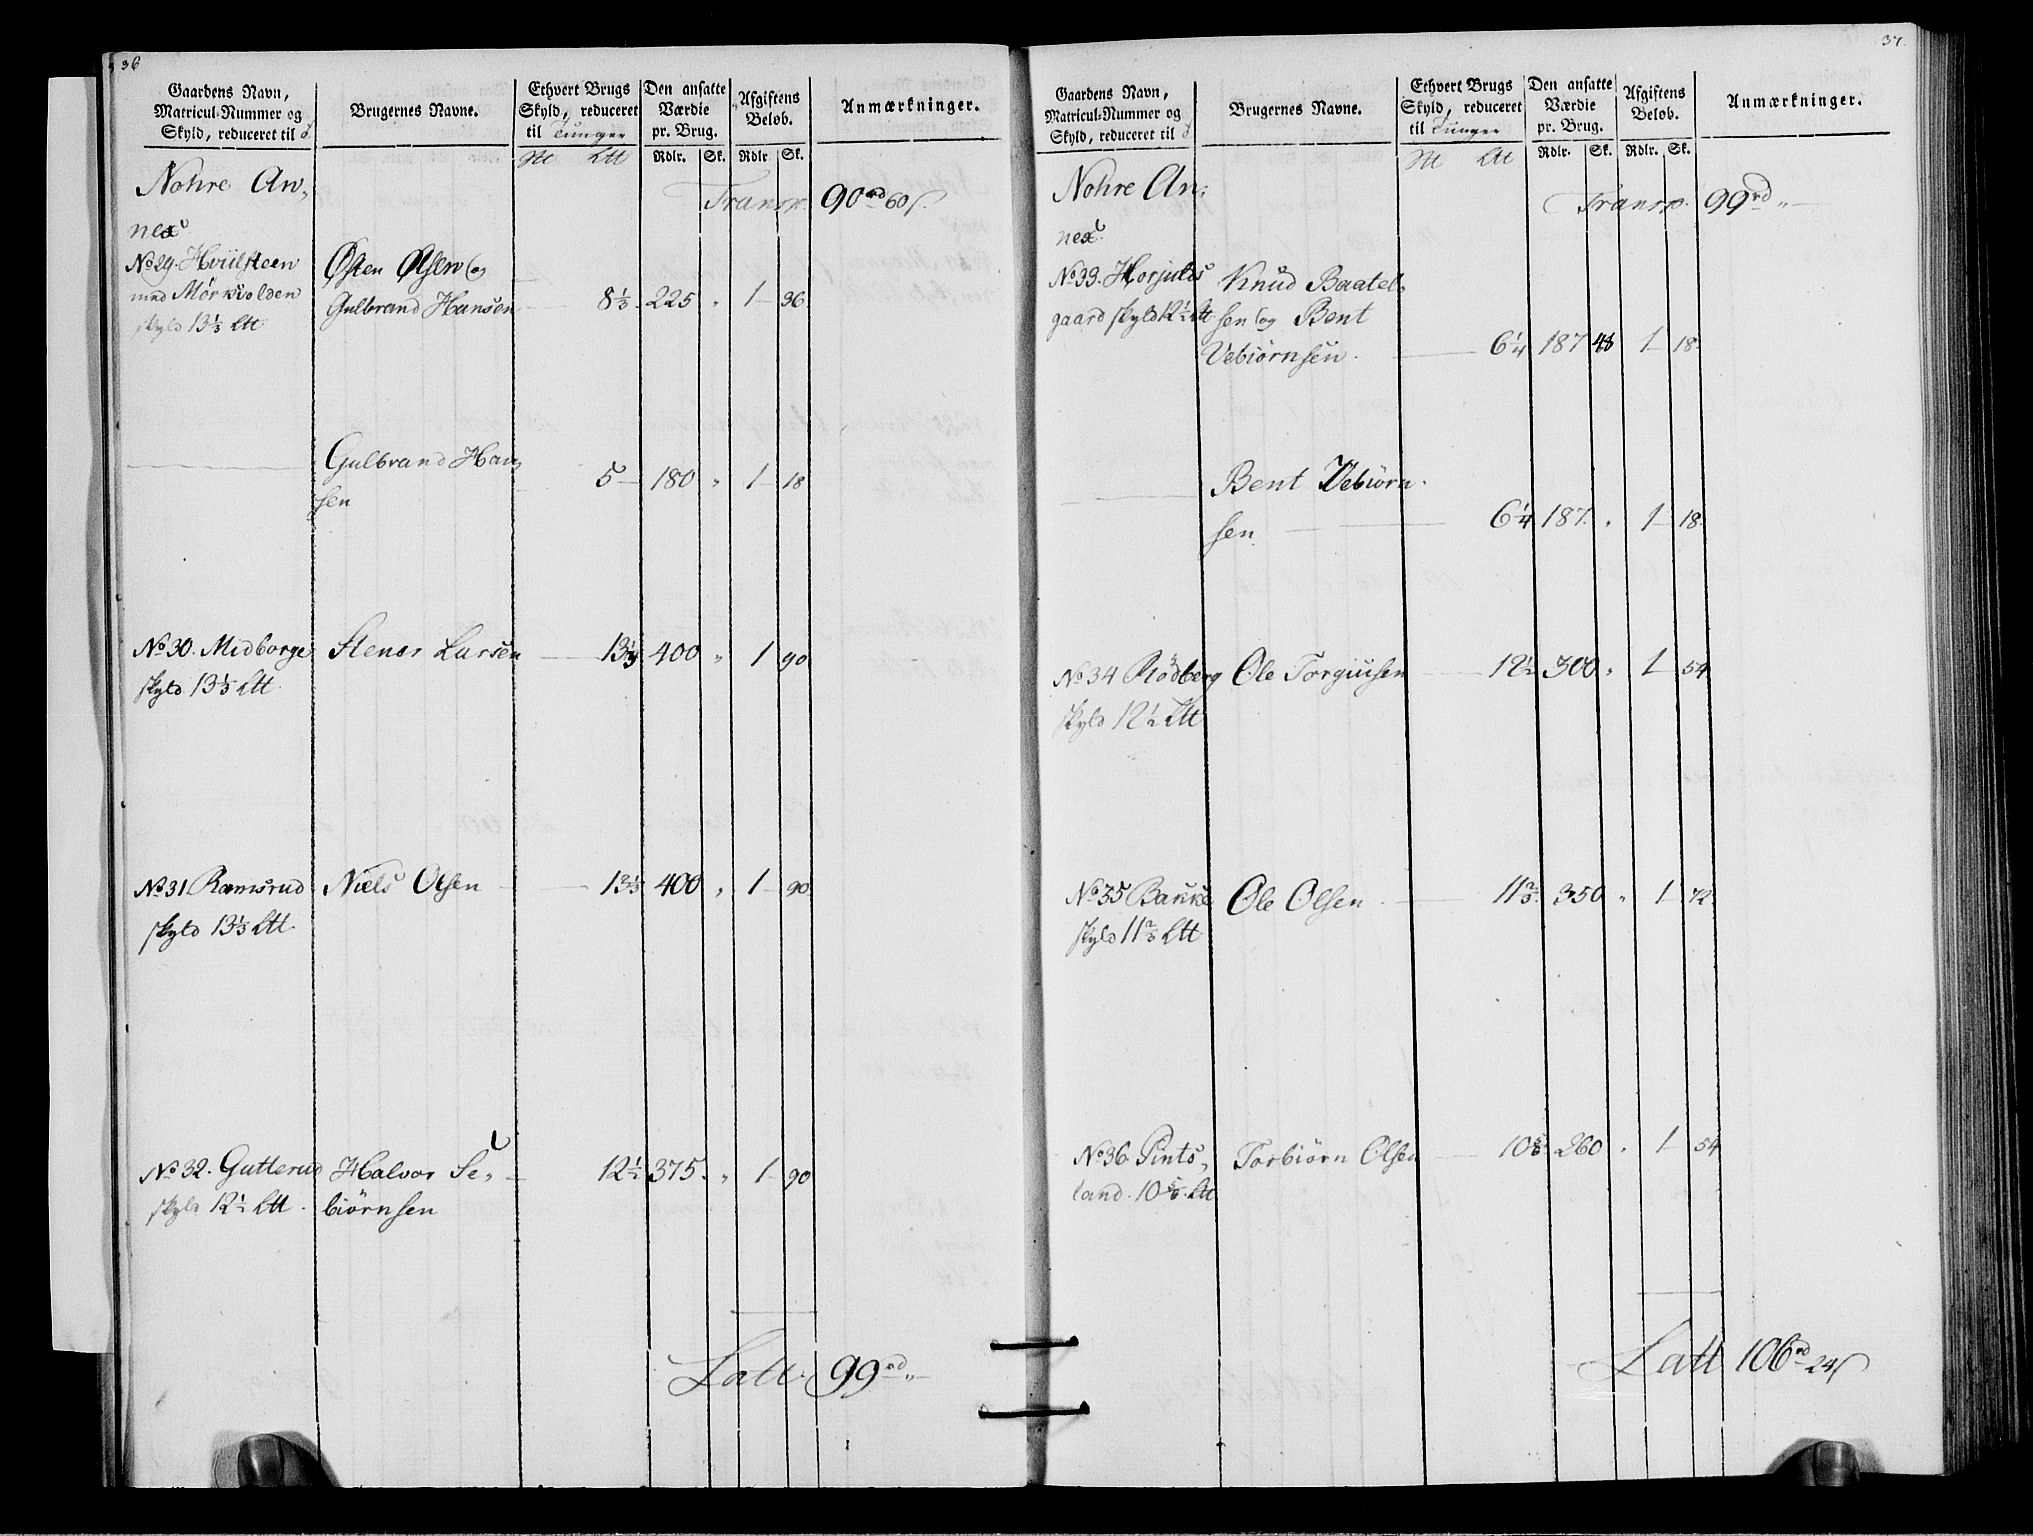 36
Gaardens Navn, Matricul-Nummer og Skyld, reduceret til
Brugernes Navne.
Ethvert Brugs Skyld, reduceret til Tunger
Den ansatte Værdie pr. Brug.
Afgiftens Beløb.
Anmærkninger.
Rdlr. Sk. Rdlr Sk.
Nohre An,
nex
Transp. 90 rd 60 s.
No 29. Hviilsteen Østen Olsen og
med Mørkvolden Gulbrand Hansen 8 1/3 225 " 1 36
skyld 13 1/3 Ltt
Gulbrand Han, 5 180 " 1 18
sen
No 30. Midborge Stener Larsen 13 1/3 400 " 1 90
skyld 13 1/3 Ltt.
No 31 Ramsrud Niels Olsen 13 1/3 400 " 1 90
skyld 13 1/3 Ltt.
No 32. Gutterud Halvor Se, 12 1/2 375. " 1 90
skyld 12 1/2 Ltt. biørnsen
Latt. 99 rd "
37.
Gaardens Navn, Matricul-Nummer og Skyld, reduceret til
Brugernes Navne.
Ethvert Brugs Skyld, reduceret til Tunger
Den ansatte Værdie pr. Brug.
Afgiftens Beløb.
Anmærkninger.
Rdlr. Sk. Rdlr. Sk.
Nohre An,
nex.
Transp. 99 rd "
No 33. Horjulds Knud Baatel,
gaard skyld 12 1/2 Ltt sen og Bent
Vebiørnsen. 6 1/4 187 48 1 18.
Bent Vebiørn
sen 6 1/4 187. " 1 18.
No 34 Rødberg Ole Torgiusen 12 1/2 300 " 1 54
skyld 12 1/2 Ltt
No 35 Bakke Ole Olsen 11 2/3 350 " 1 72.
skyld 11 2/3 Ltt
No 36 Pints, Torbiørn Olsen 10 5/6 260 " 1 54
land. 10 5/6. Ltt
Latt 106 rd 24 s